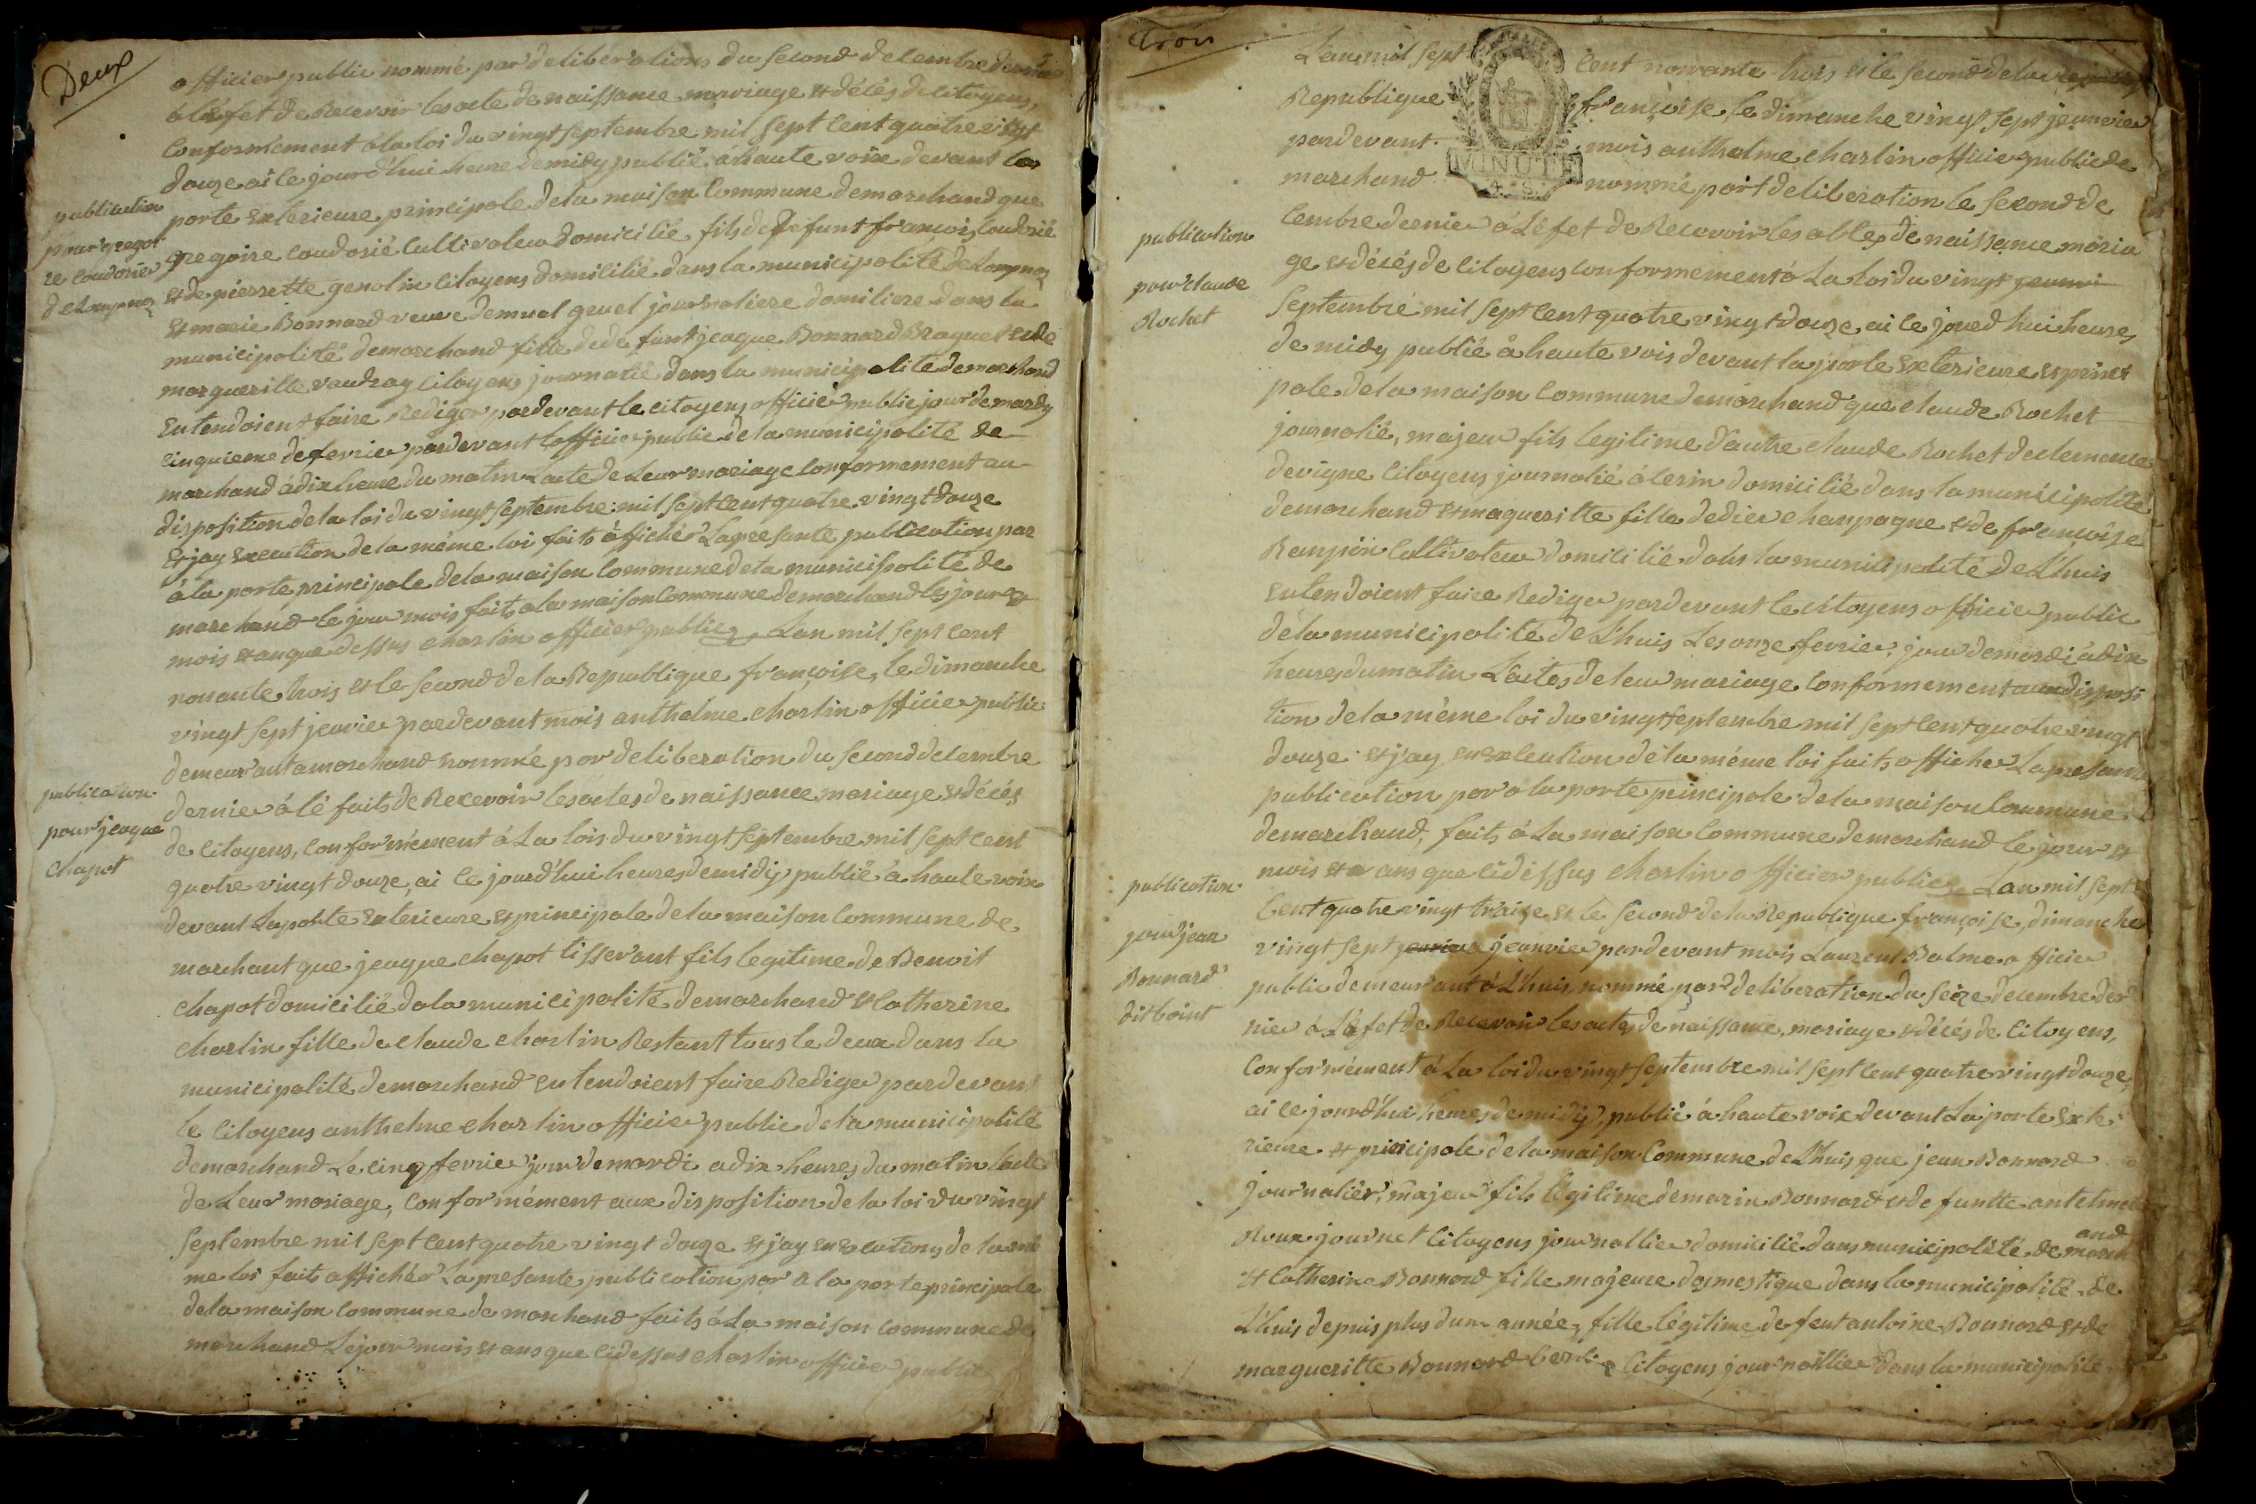 Deux
officier public nommé par deliberations du second decembre dernie
à léfet de Recevoir les acte de naissance mariage et décés de citoyens,
Conformément à la loi du vingt septembre mil sept cent quatre vingt
douze ai le jourd'hui heure de midy publié à haute voix devant la
porte exterieure principale de la maison commune demarchand que
publication
pour gregoi
re coudorié
de Lompnaz
gregoire coudorié Cultivateur domicilié fils de defunt françois Coudorié
et de pierrette genolin Citoyens domicilié dans la municipalité de Lompnaz
et marie Bonnard veuve demuel genel journaliere domiliere dans la
municipalité demarchand fille de defunt jeaque Bonnard Braquet et de
margueritte vaudray Citoyens journalié dans la municipalité demarchand
Entendoient faire Rediger pardevant le citoyens officié public jour de mardy
cinquieme de fevrier pardevant l'officier public de la municipalité de
marchand à dix heure du matin L'acte de Leur mariage Conformement au
disposition de la loi du vingt septembre mil sept cent quatre vingt douze
Et jay Execution de la méme loi faits affiché La presante publication par
à la porte principale de la maison Commune de la municipalité de
marchand le jour mois faits a la maison Commune demarchand les jour et
mois et an que dessus charlin officier public L'an mil sept cent
nonante trois et le second de la Republique françoise, le dimanche
vingt sept jeavier pardevant mois anthelme charlin officier public
demeurant a marchand nommé par deliberation du second decembre
publication
pour jeaque
chapot
dernier à lé faits de Recevoir les actes de naissance mariage et décés
de Citoyens, conformément à La lois du vingt septembre mil sept cent
quatre vingt douze, ai le jourd'hui heures de midÿ publié à haute voix
devant La porte Exterieure et principale de la maison Commune de
marchant que jeaque chapot tisserant fils legitime de Benoit
chapot domicilié da la municipalité demarchand et Catherine
charlin fille de claude charlin Restant tous le deux dans la
municipalité demarchand entendoient faire Rediger pardevant
le Citoyens anthelme charlin officier public de la municipalité
demarchand Le cinq fevrier jour de mardi a dix heures du matin lacte
de Leur mariage, Conformément aux disposition de la loi du vingt
septembre mil sept cent quatre vingt douze et jay en execution de la mé
me loi faits affiché La presante publication par a la porte principale
de la maison Commune de marchand faits à La maison commune de
marchand Le jour mois et ans que cidessus charlin officier public
trois
L'an mil sept cent nonante trois et le second de la republiq
Republique françoise, le dimanche vingt sept jeanvier
pardevant mois anthelme charlin officier public de
MINUTE
marchand nommé part deliberation le second de
cembre dernier à Léfet de Recevoir les actes de naissance maria
publication
pour claude
Rochet
ge et décés de Citoyens Conformement à La loi du vingt
septembre mil sept cent quatre vingt douze, ai le jourd hui heures
de midy publié à haute vois devant la porte Exterieure et princi
pale de la maison Commune demarchand que claude Rochet
journalié, majeur fils legitime d'autre claude Rochet de clemence
devigne Citoyens journalié à lerin domicilié dans la municipalité
demarchand et magueritte fille dedier chanpagne et de françoise
Rampon Cultivateur domicilié dans la municipalité de L'huis
entendoient faire Rediger pardevant le citoyens officier public
de la municipalité de L'huis Les onze fevrier, jour demardi à dix
heures du matin L'actes de leur mariage Conformement aux disposi
tion de la méme loi du vingt septembre mil sept cent quatre vingt
douze et jay en execution de la méme loi faits afficher La presant
publication par a la porte principale de la maison Commune
demarchand, faits à La maison Commune demarchand le jour et
mois et ans que cidessus charlin officier public L'an mil sept
publication
pour jean
Bonnard
dit boint
Cent quatre vingt traize et le second de la Republique françoise dimanche
vingt sept jeanvier pardevant mois Laurent Balme officier
public demeurant à L'huis nommé par deliberation du seize decembre der
nier à Léfet de Recevoir les actes de naissance, mariage et décés de Citoyens,
Conformément à La loi du vingt septembre mil sept cent quatre vingt douze,
ai le jourd'hui heures de midÿ, publié à haute voix devant La porte Exte
rieure et principale de la maison Commune de L'huis que jean Bonnard
journaliér, majeur fils legitime demarin Bonnard et de funtte antelme
Roux journet Citoyens journallier domicilié dans municipalité de march
and
et Catherine Bonnard fille majeure domestique dans la municipalité de
L'huis depuis plus d'une année, fille légitime de feut antoine Bonnard et de
margueritte Bonnard Citoyens journallier dans la municipalité